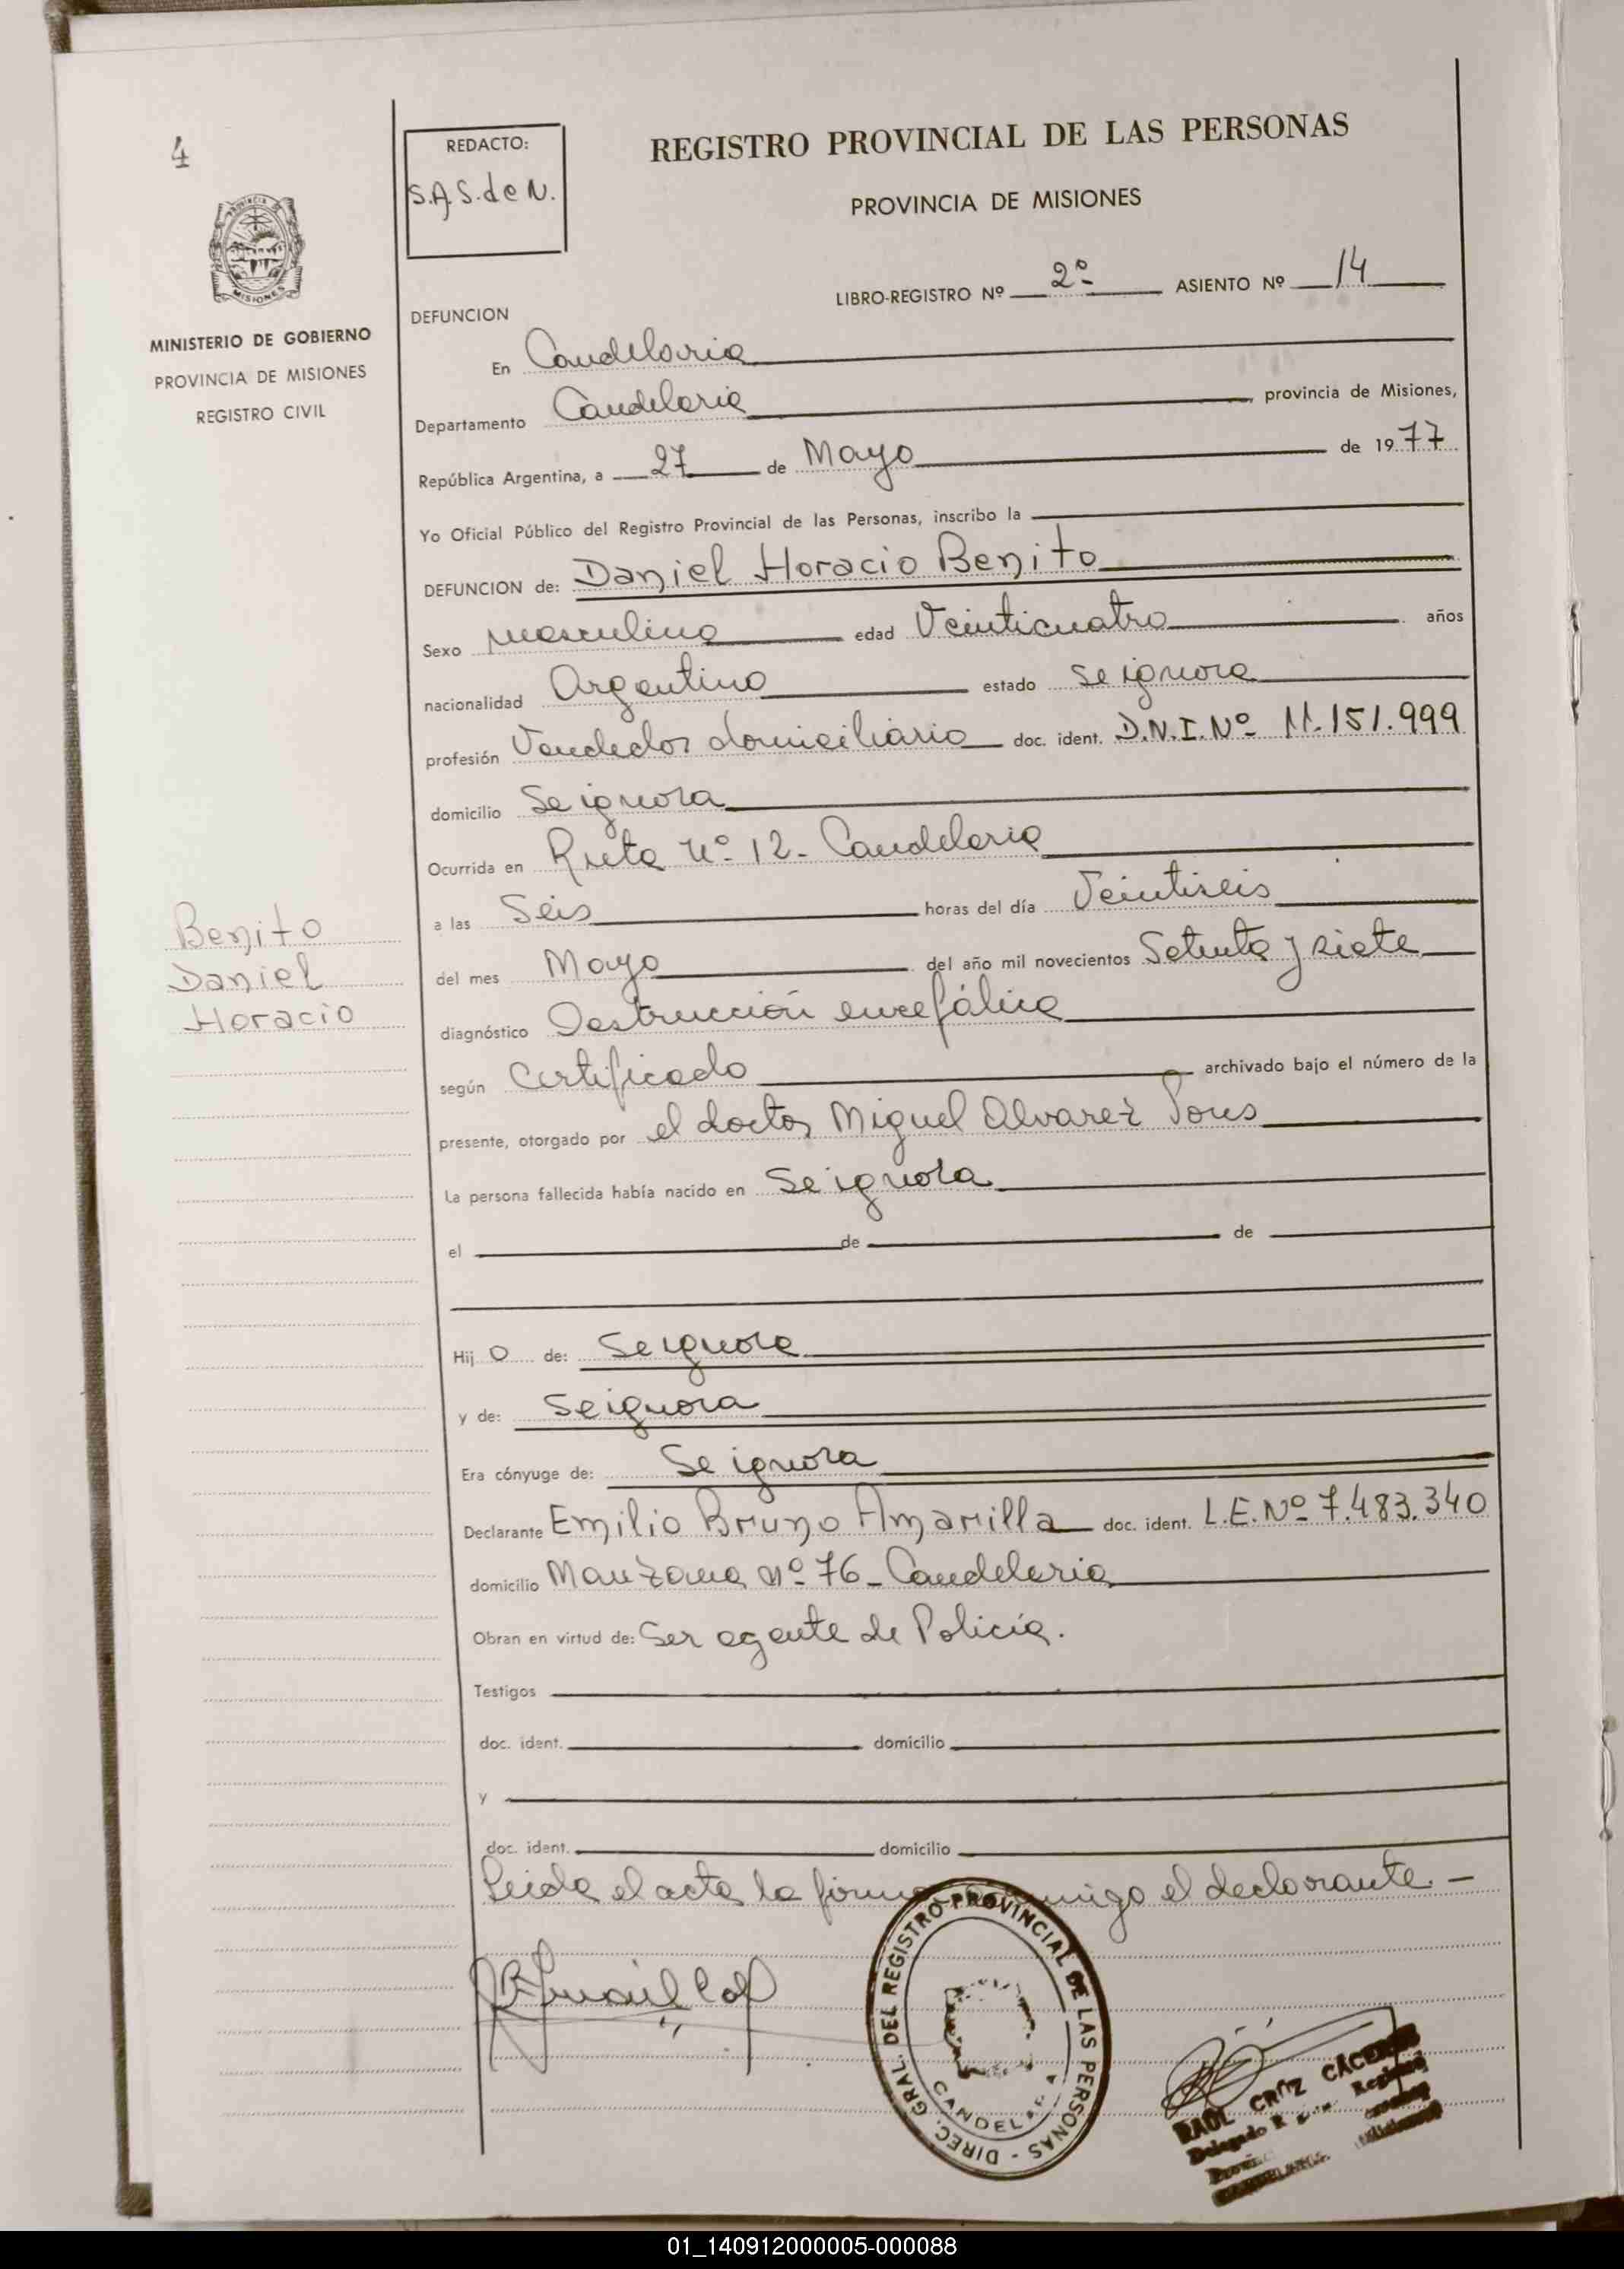 4
REDACTO:
S.A.S. de N.
REGISTRO PROVINCIAL DE LAS PERSONAS
PROVINCIA DE MISIONES
LIBRO-REGISTRO Nº 2º ASIENTO Nº 14
PROVINCIA DE
MISIONES
MINISTERIO DE GOBIERNO
PROVINCIA DE MISIONES
REGISTRO CIVIL
DEFUNCION
En Candelaria
Departamento Candelaria, provincia de Misiones,
República Argentina, a 27 de Mayo de 1977
Yo Oficial Público del Registro Provincial de las Personas, inscribo la
DEFUNCION de: Daniel Horacio Benito
Sexo masculino edad Veinticuatro años
nacionalidad Argentino estado se ignora
profesión Vendedor domiciliario doc. ident. D.N.I. Nº 11.151.999
domicilio Se ignora
Ocurrida en Ruta Nº 12 - Candelaria
a las Seis horas del día Veintiseis
del mes Mayo del año mil novecientos Setenta y siete
diagnóstico Destrucción encefálica
según Certificado archivado bajo el número de la
presente, otorgado por el doctor Miguel Alvarez Pons
La persona fallecida había nacido en Se ignora
el de de
Hijo de: Se ignora
y de: Se ignora
Era cónyuge de: Se ignora
Declarante Emilio Bruno Amarilla doc. ident. L.E. Nº 7.483.340
domicilio Manzana nº 76 - Candelaria
Obran en virtud de: Ser agente de Policía.
Testigos
doc. ident. domicilio
y
doc. ident. domicilio
Leida el acta la firma conmigo el declarante -
Benito
Daniel
Horacio
DIREC. GRAL. DEL REGISTRO PROVINCIAL DE LAS PERSONAS -
RAÚL CRUZ CÁCERES
Delegado
01_140912000005-000088